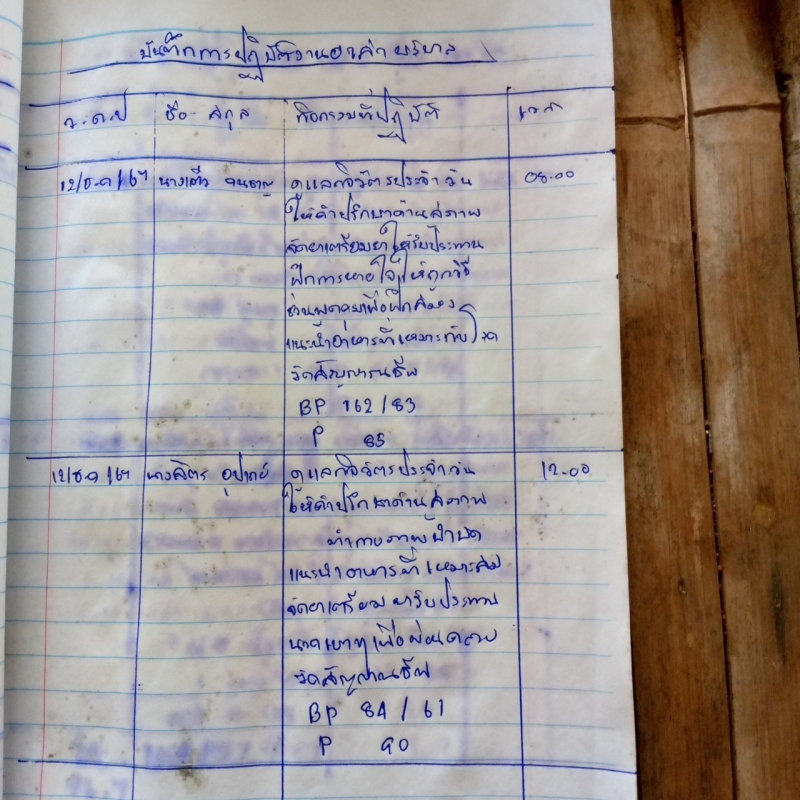 บันทึกการปฏิบัติงานอาสาบริบาล
ว.ด.ป ชื่อ-สกุล กิจกรรมที่ปฏิบัติ เวลา
12/ธ.ค/67 ดูแลกิจวัตรประจำวัน 08.00
ให้คำปรึกษาด้านสุขภาพ
จัดยาเตรียมยาให้รับประทาน
ฝึกการหายใจให้ถูกวิธี
ชวนพูดคุยเพื่อฝึกสมอง
แนะนำอาหารที่เหมาะกับโรค
วัดสัญญาณชีพ
BP 162/83
P 85
12/ธ.ค/67 ดูแลกิจวัตรประจำวัน 12.00
ให้คำปรึกษาด้านสุขภาพ
ทำกายภาพบำบัด
แนะนำอาหารที่เหมาะสม
จัดยาเตรียมยารับประทาน
นวดเบาๆเพื่อผ่อนคลาย
วัดสัญญาณชีพ
BP 84/61
P 90